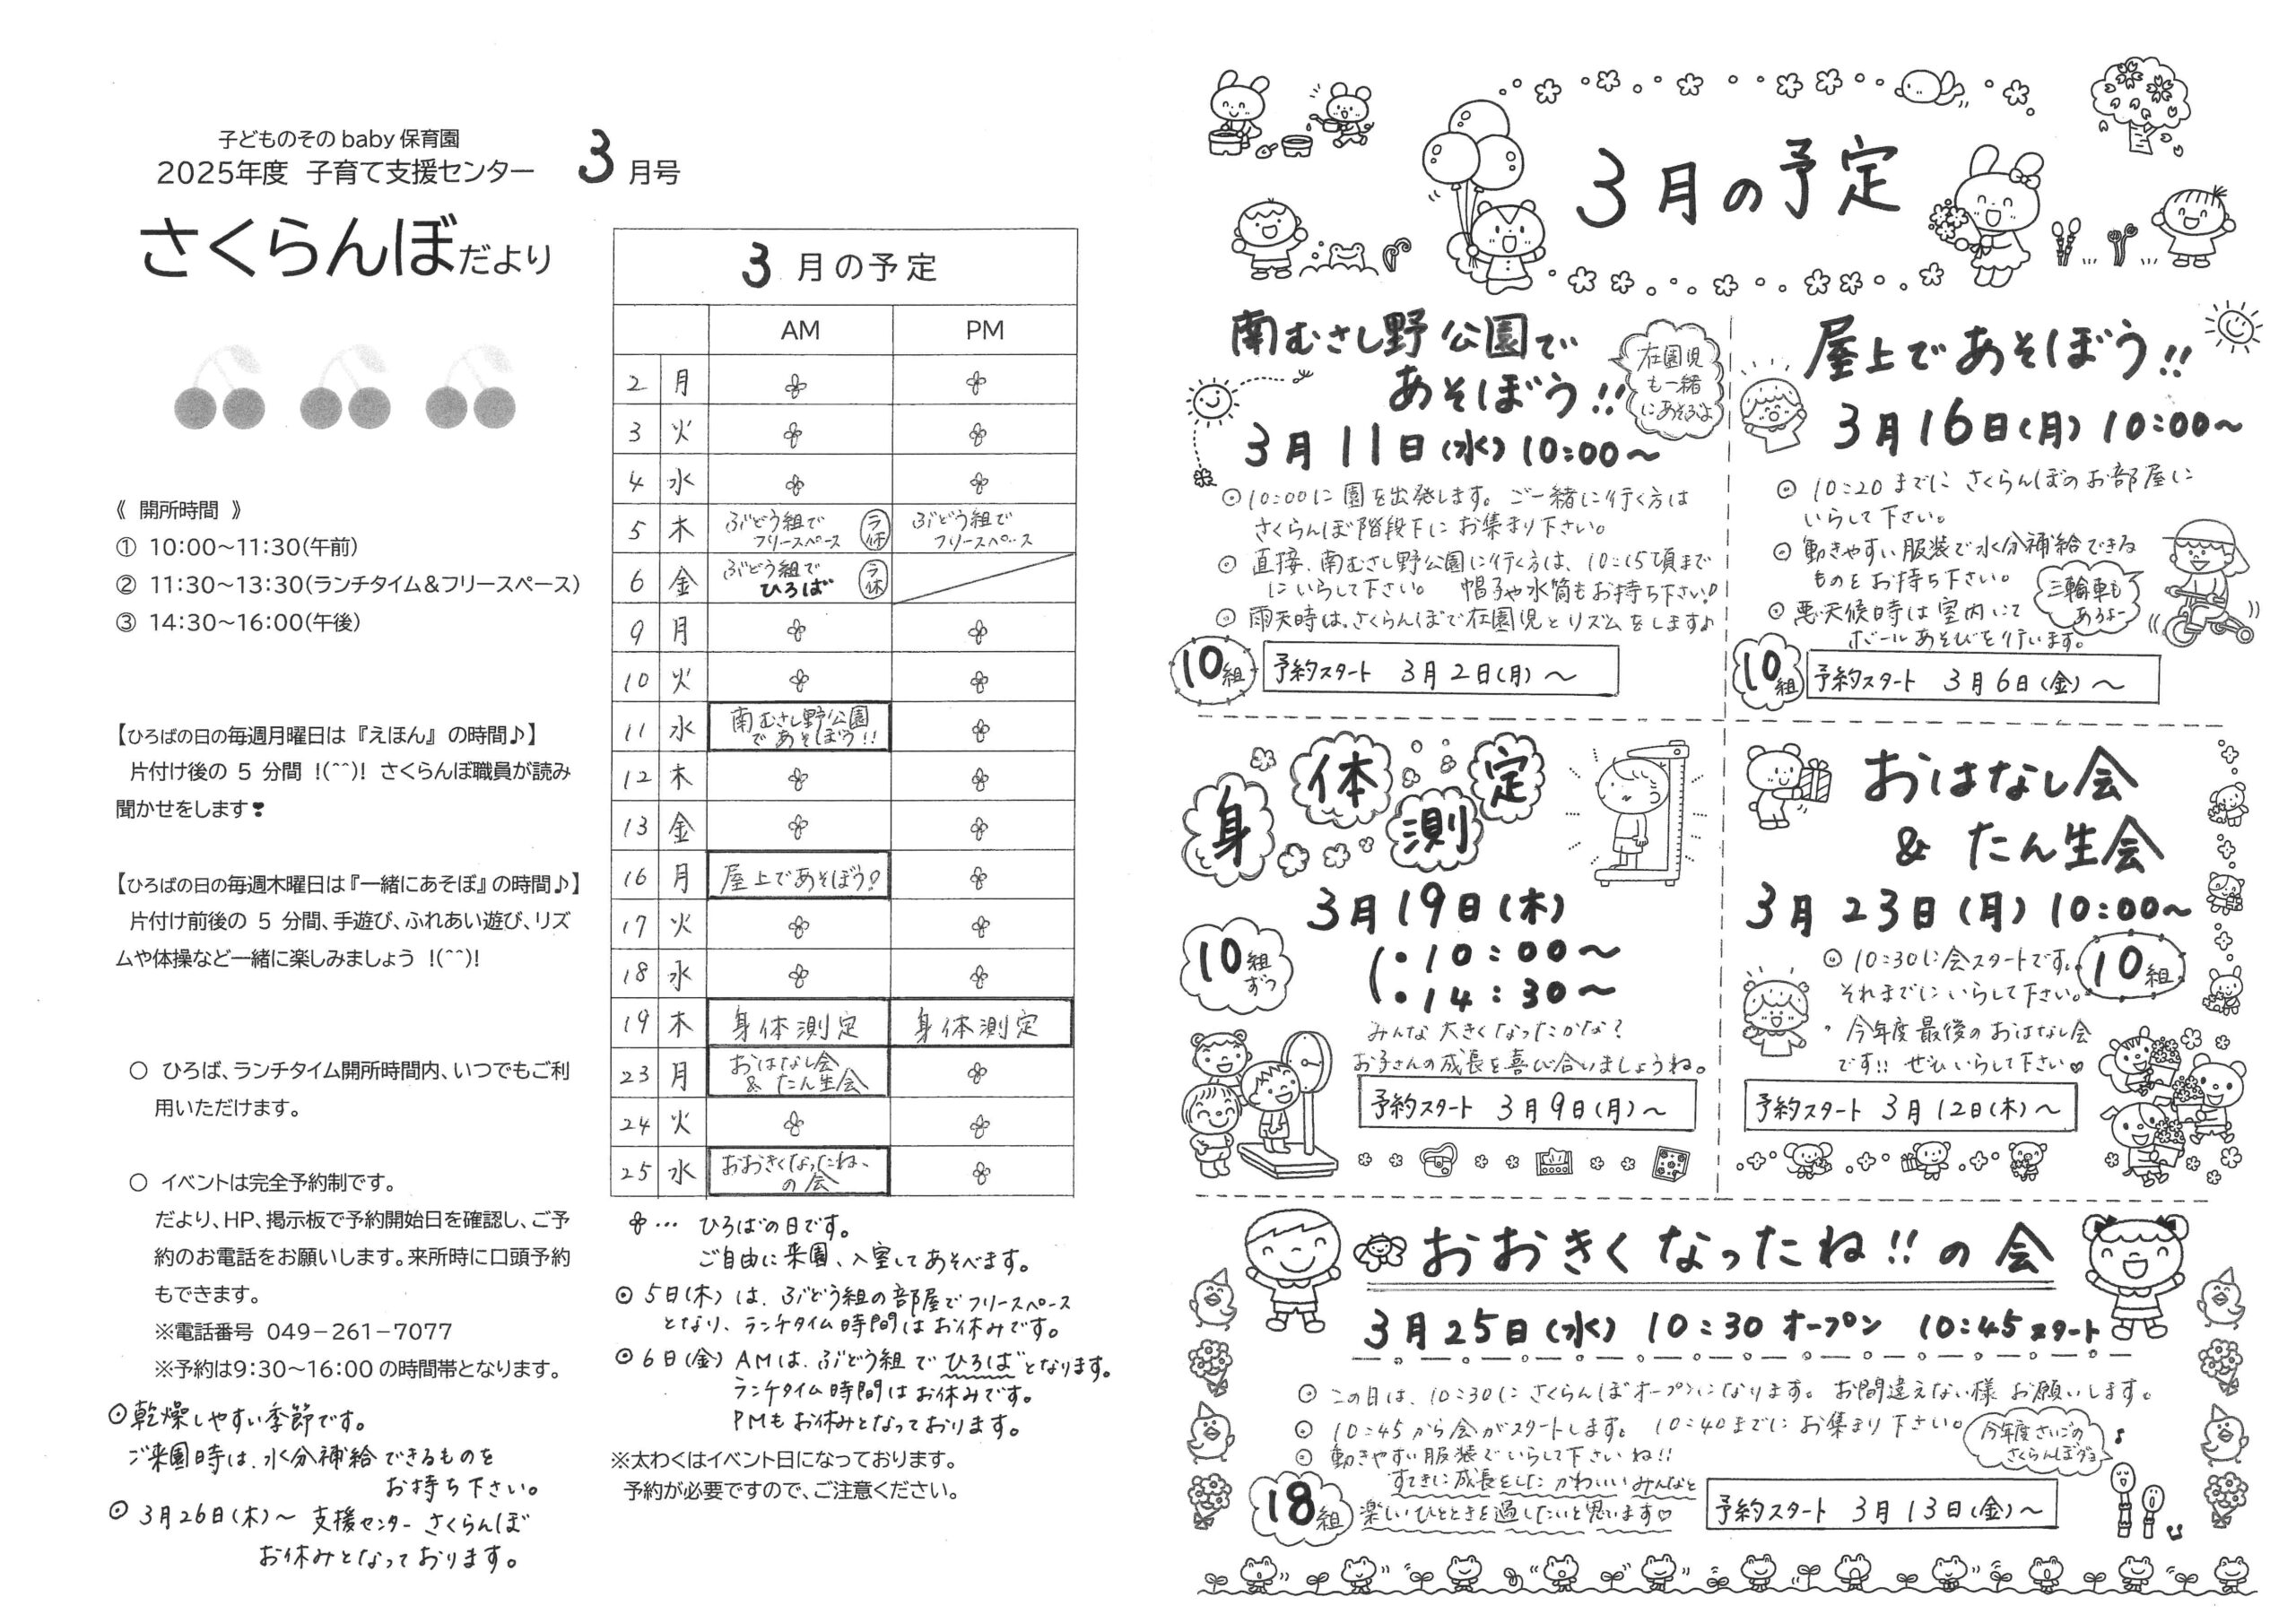 子どものそのbaby保育園
2025年度 子育て支援センター 3月号
さくらんぼだより
《 開所時間 》
① 10:00～11:30(午前)
② 11:30～13:30(ランチタイム＆フリースペース)
③ 14:30～16:00(午後)
【ひろばの日の毎週月曜日は『えほん』の時間♪】
片付け後の 5 分間 !(^^)! さくらんぼ職員が読み
聞かせをします❣
【ひろばの日の毎週木曜日は『一緒にあそぼ』の時間♪】
片付け前後の 5 分間、手遊び、ふれあい遊び、リズ
ムや体操など一緒に楽しみましょう !(^^)!
○ ひろば、ランチタイム開所時間内、いつでもご利
用いただけます。
○ イベントは完全予約制です。
だより、HP、掲示板で予約開始日を確認し、ご予
約のお電話をお願いします。来所時に口頭予約
もできます。
※電話番号 049－261－7077
※予約は9:30～16:00の時間帯となります。
◎乾燥しやすい季節です。
ご来園時は、水分補給できるものを
お持ち下さい。
◎ 3月26日(木)～ 支援センター さくらんぼ
お休みとなっております。
3 月の予定
AM PM
2 月
3 火
4 水
5 木 ぶどう組で フリースペース ラ休 ぶどう組で フリースペース
6 金 ぶどう組で ひろば ラ休
9 月
10 火
11 水 南むさし野公園 であそぼう!!
12 木
13 金
16 月 屋上であそぼう!
17 火
18 水
19 木 身体測定 身体測定
23 月 おはなし会 & たん生会
24 火
25 水 おおきくなったね、の会
… ひろばの日です。
ご自由に来園、入室してあそべます。
◎ 5日(木)は、ぶどう組の部屋でフリースペース
となり、ランチタイム時間はお休みです。
◎ 6日(金) AMは、ぶどう組でひろばとなります。
ランチタイム時間はお休みです。
PMもお休みとなっております。
※太わくはイベント日になっております。
予約が必要ですので、ご注意ください。
3月の予定
南むさし野公園で
あそぼう!!
在園児
も一緒
にあそぶよ
3月11日(水) 10:00～
◎10:00に園を出発します。ご一緒に行く方は
さくらんぼ階段下にお集まり下さい。
◎ 直接、南むさし野公園に行く方は、10:15頃まで
にいらして下さい。 帽子や水筒もお持ち下さい!
◎ 雨天時は、さくらんぼで在園児とリズムをします♪
10組
予約スタート 3月2日(月)～
屋上であそぼう!!
3月16日(月) 10:00～
◎ 10:20までに さくらんぼのお部屋に
いらして下さい。
◎ 動きやすい服装で水分補給できる
ものをお持ち下さい。
三輪車も
あるよー
◎ 悪天候時は室内にて
ボールあそびを行います。
10組
予約スタート 3月6日(金)～
身体測定
3月19日(木)
・10:00～
・14:30～
10組ずつ
みんな大きくなったかな?
お子さんの成長を喜び合いましょうね。
予約スタート 3月9日(月)～
おはなし会
& たん生会
3月23日(月) 10:00～
◎ 10:30に会スタートです。
それまでにいらして下さい。
10組
・今年度最後のおはなし会
です!! ぜひいらして下さい♡
予約スタート 3月12日(木)～
おおきくなったね!!の会
3月25日(水) 10:30オープン 10:45スタート
◎ この日は、10:30にさくらんぼオープンになります。お間違えない様お願いします。
◎ 10:45から会がスタートします。 10:40までにお集まり下さい。
◎ 動きやすい服装でいらして下さいね!!
今年度さいごの
さくらんぼダヨ
すてきに成長をした かわいい みんなと
楽しいひとときを過したいと思います♡
18組
予約スタート 3月13日(金)～